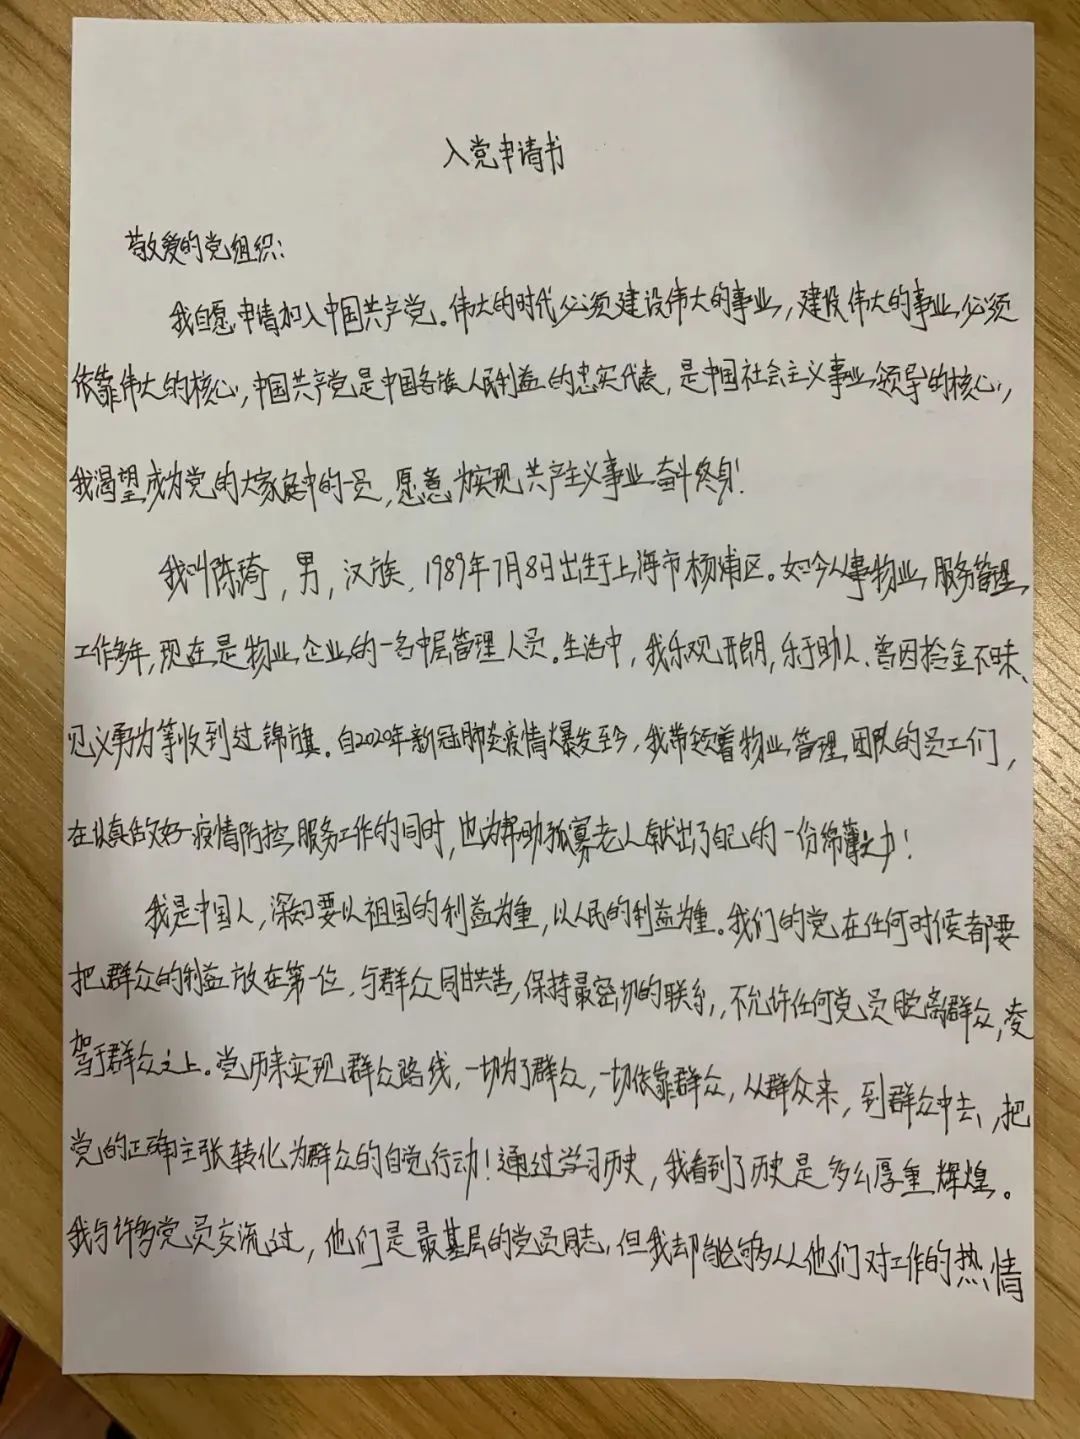 入党申请书
敬爱的党组织：
我自愿申请加入中国共产党。伟大的时代必须建设伟大的事业，建设伟大的事业必须
依靠伟大的核心，中国共产党是中国各族人民利益的忠实代表，是中国社会主义事业领导的核心，
我渴望成为党的大家庭中的一员，愿意为实现共产主义事业奋斗终身！
我叫陈琦，男，汉族，1989年7月8日出生于上海市杨浦区。如今从事物业服务管理
工作多年，现在是物业企业的一名中层管理人员。生活中，我乐观开朗，乐于助人、曾因拾金不昧、
见义勇为等收到过锦旗。自2020年新冠肺炎疫情爆发至今，我带领着物业管理团队的员工们，
在认真做好疫情防控服务工作的同时，也为帮助孤寡老人献出了自己的一份绵薄之力！
我是中国人，深知要以祖国的利益为重，以人民的利益为重。我们的党在任何时候都要
把群众的利益放在第一位，与群众同甘共苦，保持最密切的联系，不允许任何党员脱离群众，凌
驾于群众之上。党历来实现群众路线，一切为了群众，一切依靠群众，从群众来，到群众中去，把
党的正确主张转化为群众的自觉行动！通过学习历史，我看到了历史是多么厚重辉煌。
我与许多党员交流过，他们是最基层的党员同志，但我却能够从他们对工作的热情